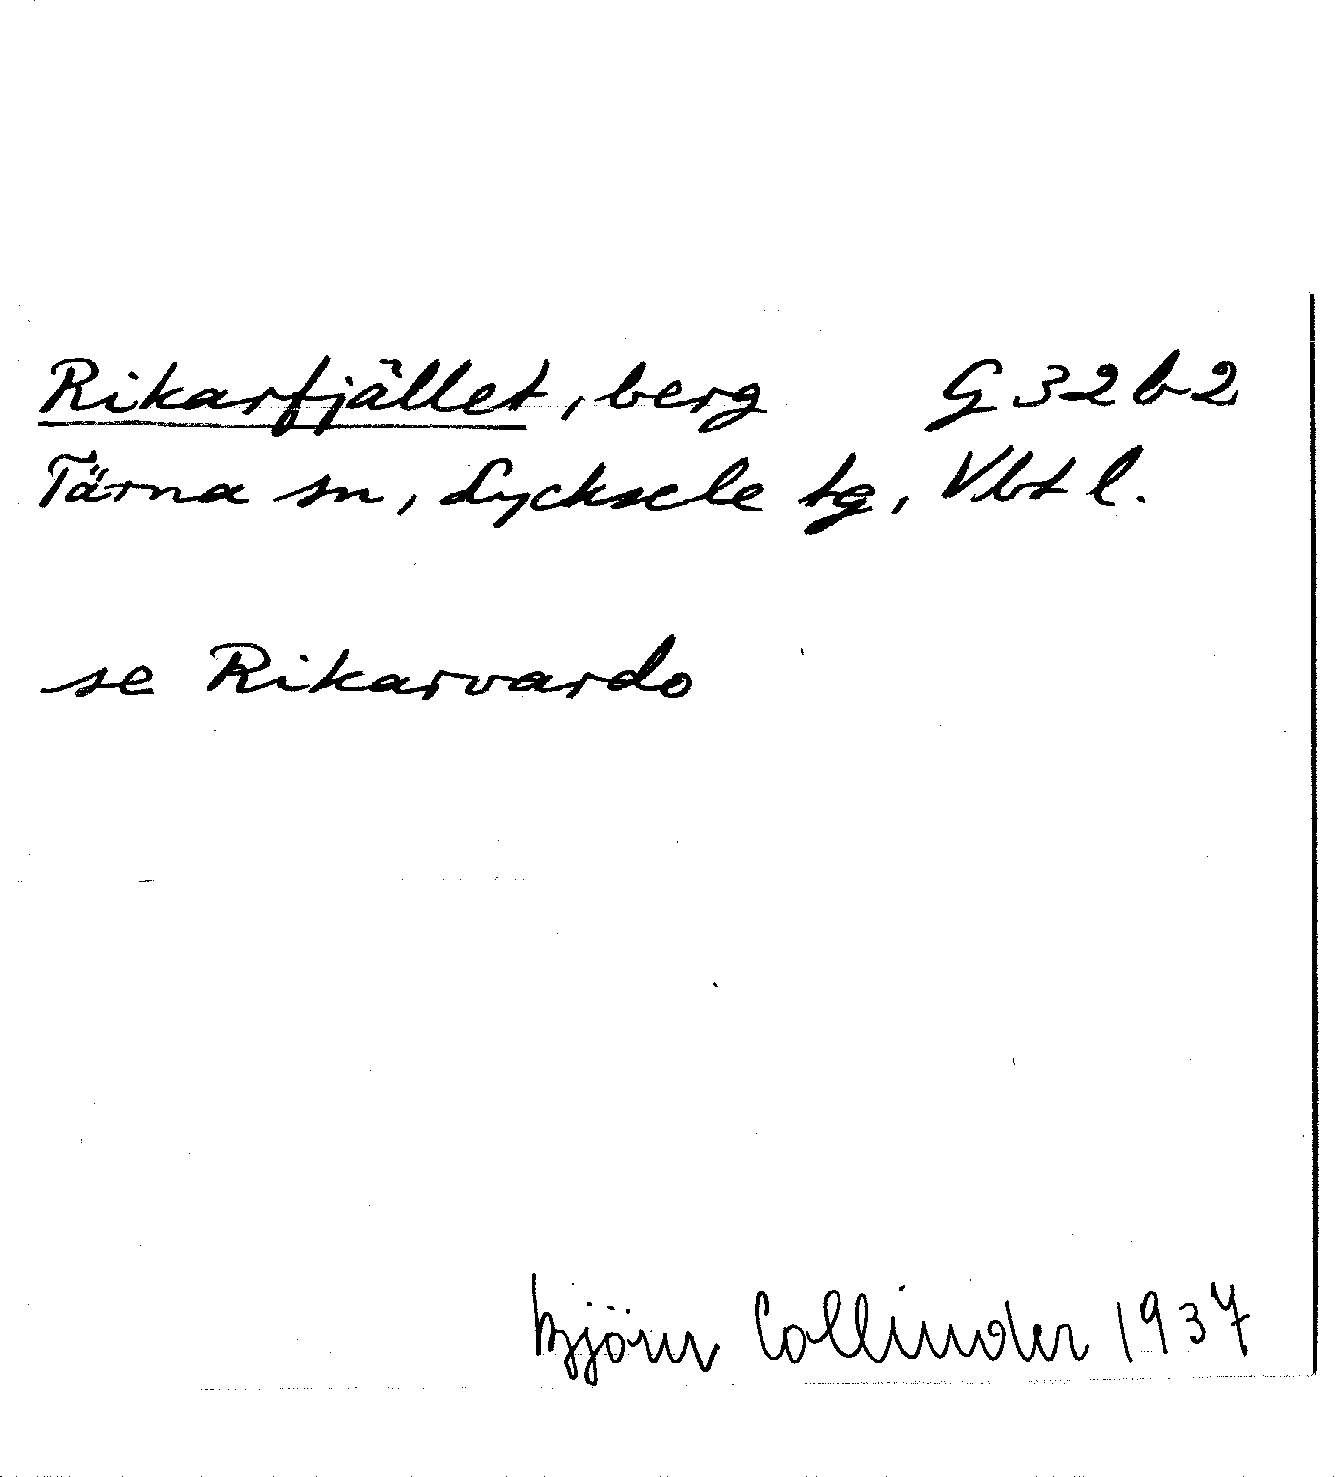 Rikarfjället, berg G 32 b 2
Tärna sn, Lycksele tg, Vbt l.
se Rikarvardo
Björn Collinder 1937